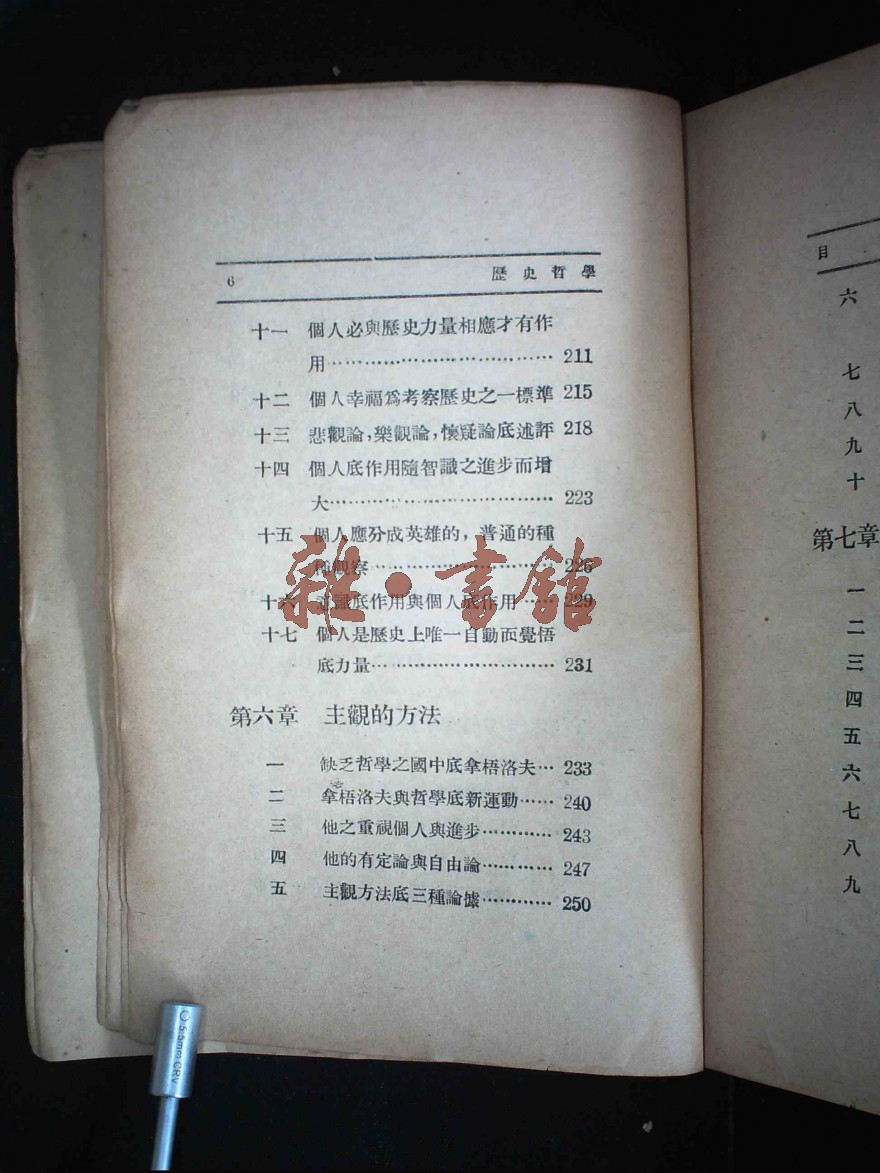 6 歷史哲學
十一 個人必與歷史力量相應才有作
用………………………………… 211
十二 個人幸福爲考察歷史之一標準 215
十三 悲觀論,樂觀論,懷疑論底述評 218
十四 個人底作用隨智識之進步而增
大………………………………… 223
十五 個人應分成英雄的,普通的種
種觀察………………………… 226
十六 底作用與個人底作用…… 229
十七 個人是歷史上唯一自動而覺悟
底力量………………………… 231
第六章 主觀的方法
一 缺乏哲學之國中底拿梧洛夫… 233
二 拿梧洛夫與哲學底新運動…… 240
三 他之重視個人與進步………… 243
四 他的有定論與自由論………… 247
五 主觀方法底三種論據………… 250
雜·書館
5.5mm CRV
目
六
七
八
九
十
第七章
一
二
三
四
五
六
七
八
九